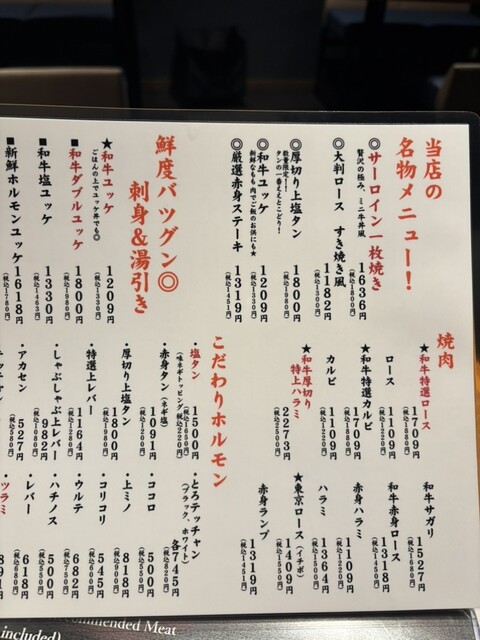 当店の
名物メニュー！
◎サーロイン一枚焼き
贅沢の極み、ミニ牛丼風
1636円
(税込1800円)
◎大判ロース すき焼き風
1182円
(税込1300円)
◎厚切り上塩タン
数量限定！！
タンの一番ええとこどり！
1800円
(税込1980円)
◎和牛ユッケ
新鮮なもも肉でご飯のお供にも★
1209円
(税込1330円)
◎厳選赤身ステーキ
1319円
(税込1451円)
鮮度バツグン◎
刺身&湯引き
★和牛ユッケ
ごはんの上でユッケ丼でも◎
1209円
(税込1330円)
■和牛ダブルユッケ
1800円
(税込1980円)
■和牛塩ユッケ
1330円
(税込1463円)
■新鮮ホルモンユッケ
1618円
(税込1780円)
焼肉
★和牛特選ロース
1709円
(税込1880円)
ロース
1209円
(税込1330円)
★和牛特選カルビ
1709円
(税込1880円)
カルビ
1109円
(税込1220円)
★和牛厚切り
特上ハラミ
2273円
(税込2500円)
和牛サガリ
1527円
(税込1680円)
和牛赤身ロース
1318円
(税込1450円)
赤身ハラミ
1109円
(税込1220円)
ハラミ
1364円
(税込1500円)
★東京ロース(イチボ)
1409円
(税込1550円)
赤身ランプ
1319円
(税込1451円)
こだわりホルモン
・塩タン
(味ネギトッピング税込220円)
1500円
(税込1650円)
・赤身タン(ネギ塩)
1091円
(税込1200円)
・厚切り上塩タン
1800円
(税込1980円)
・特選上レバー
1164円
(税込1280円)
・しゃぶしゃぶ上レバー
982円
(税込1080円)
・アカセン
527円
(税込580円)
・とろテッチャン
(ブラック、ホワイト)
各745円
(税込820円)
・ココロ
500円
(税込550円)
・上ミノ
818円
(税込900円)
・コリコリ
545円
(税込600円)
・ウルテ
682円
(税込750円)
・ハチノス
500円
(税込550円)
・レバー
618円
(税込680円)
・ツラミ
commended Meat
included)